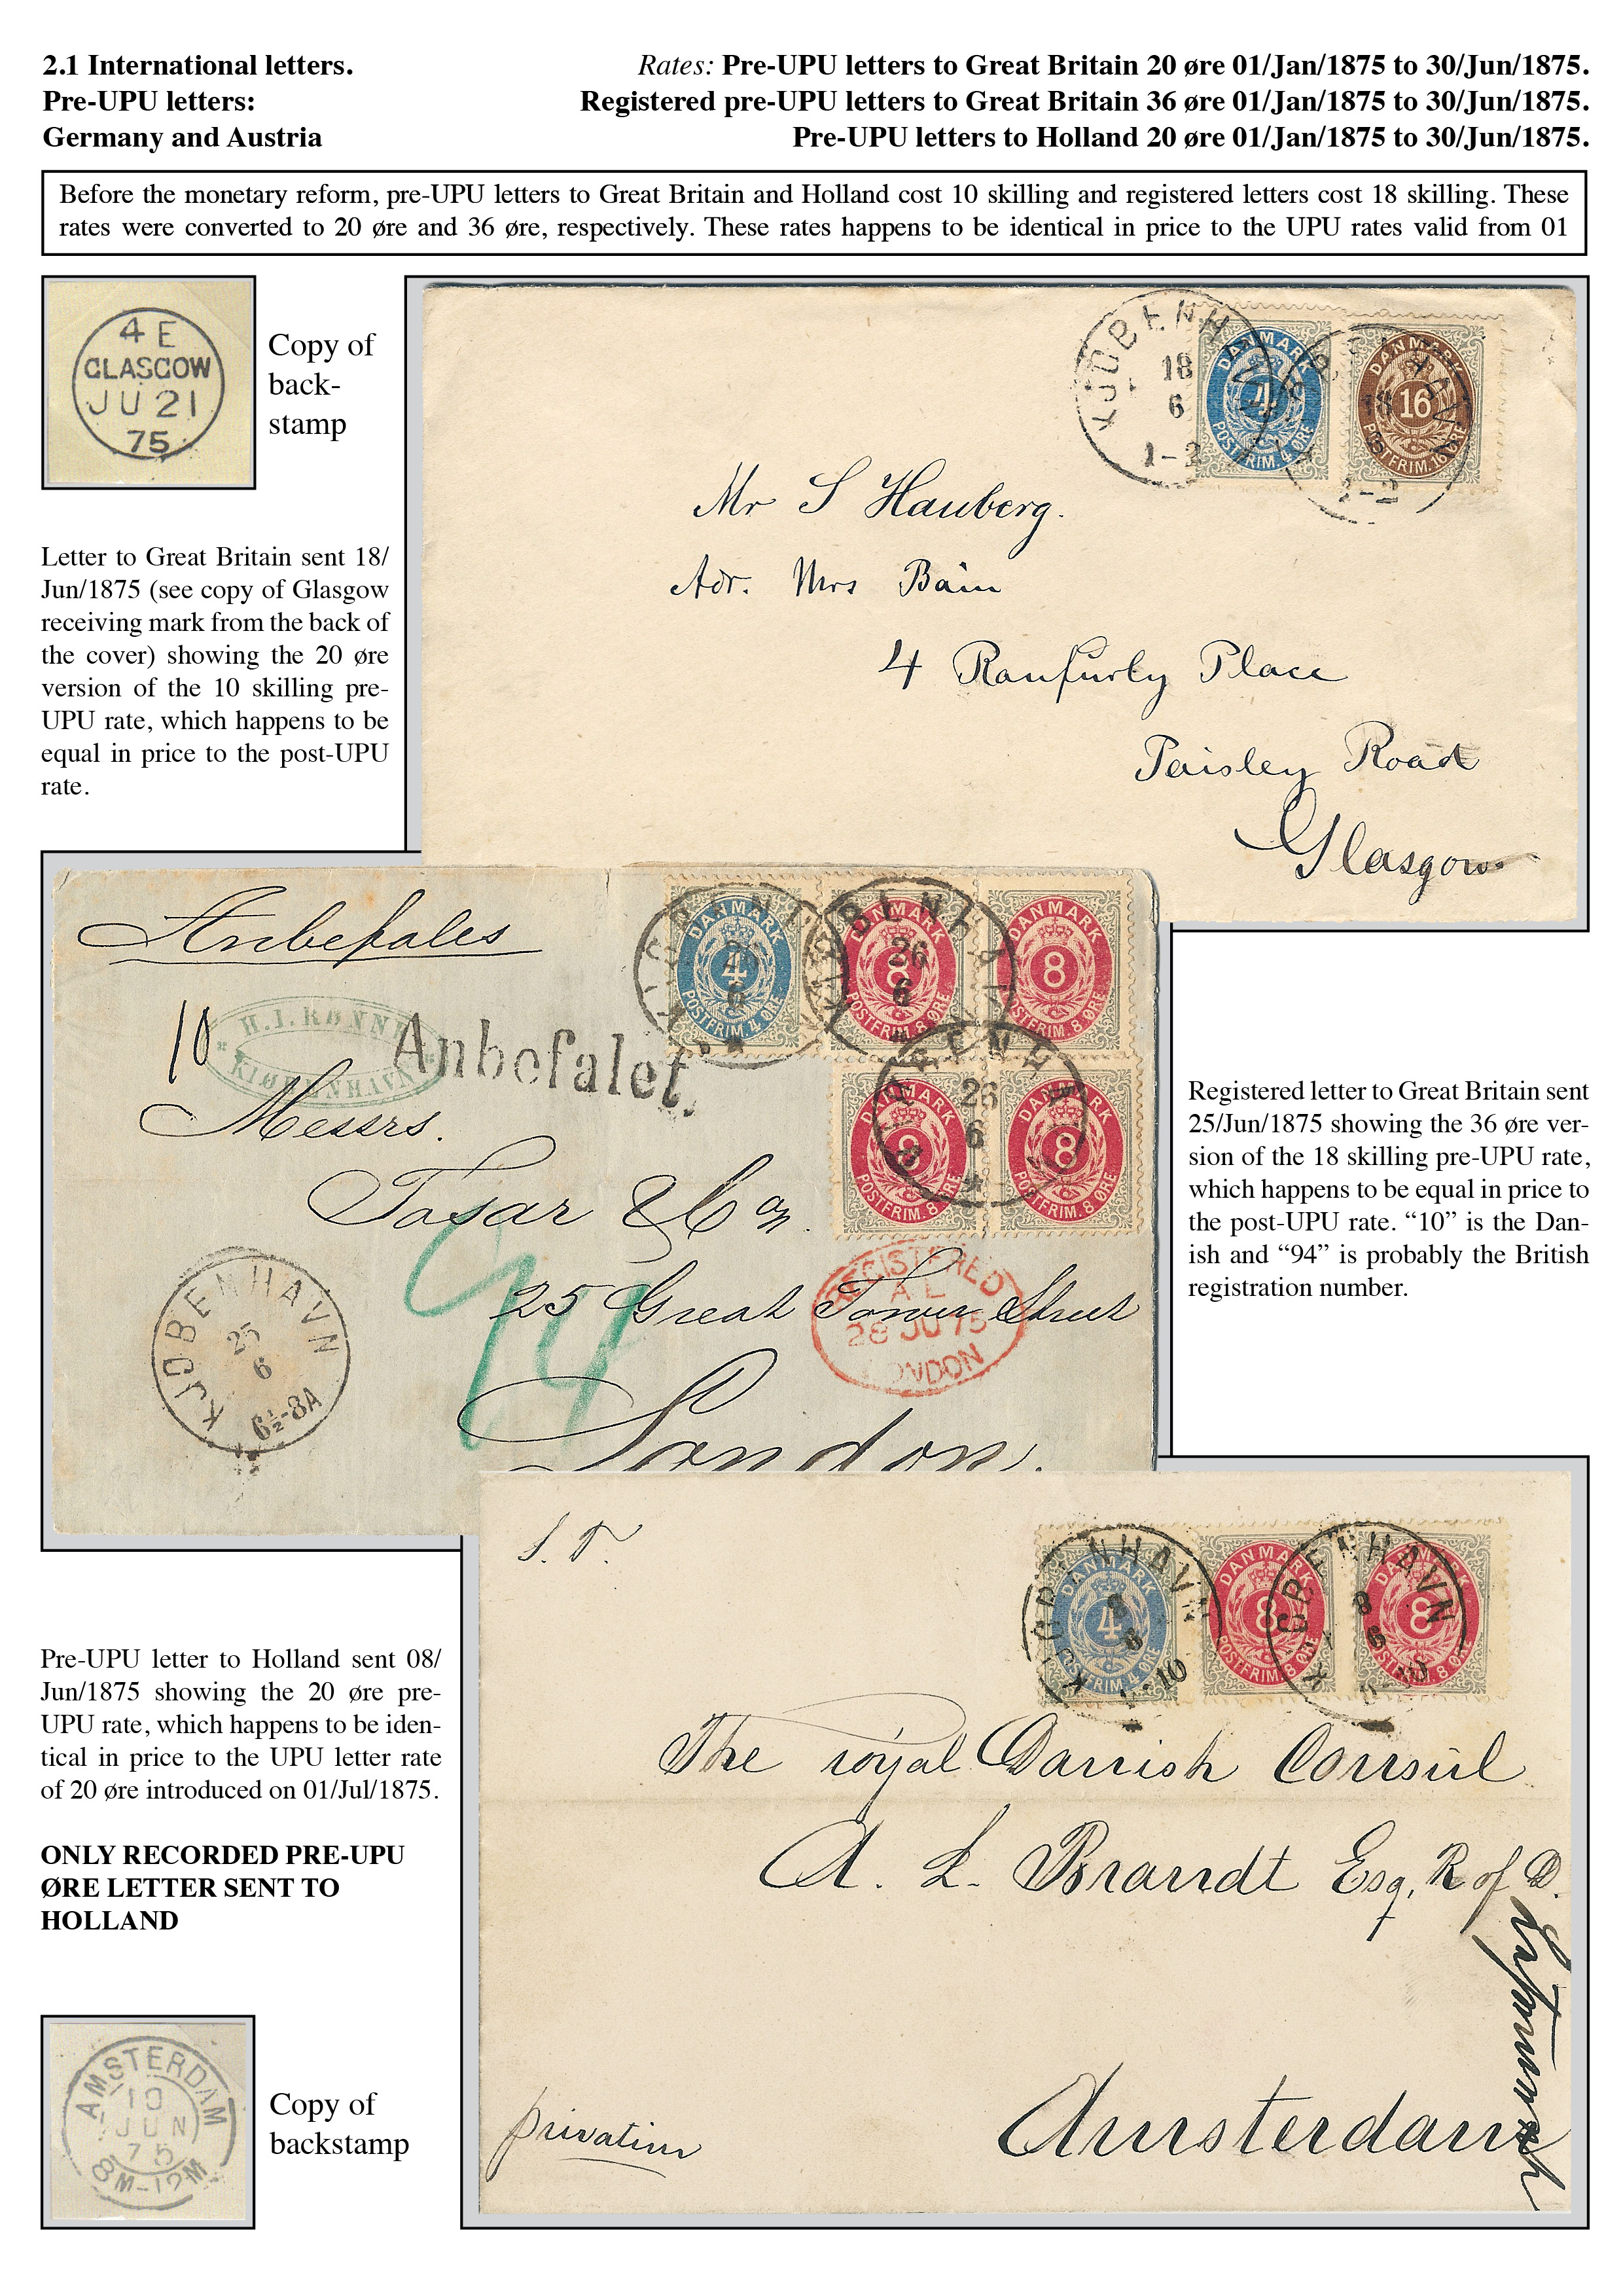 2.1 International letters.
Pre-UPU letters:
Germany and Austria
Rates: Pre-UPU letters to Great Britain 20 øre 01/Jan/1875 to 30/Jun/1875.
Registered pre-UPU letters to Great Britain 36 øre 01/Jan/1875 to 30/Jun/1875.
Pre-UPU letters to Holland 20 øre 01/Jan/1875 to 30/Jun/1875.
Before the monetary reform, pre-UPU letters to Great Britain and Holland cost 10 skilling and registered letters cost 18 skilling. These
rates were converted to 20 øre and 36 øre, respectively. These rates happens to be identical in price to the UPU rates valid from 01
4 E
GLASGOW
JU 21
75
Copy of
back-
stamp
Letter to Great Britain sent 18/
Jun/1875 (see copy of Glasgow
receiving mark from the back of
the cover) showing the 20 øre
version of the 10 skilling pre-
UPU rate, which happens to be
equal in price to the post-UPU
rate.
KJØBENHAVN
18
6
1-2
DANMARK
4
POSTFRIM. 4 ØRE
DANMARK
16
POSTFRIM. 16 ØRE
1-2
Mr S Hauberg.
Adr. Mrs Bain
4 Ranfurly Place
Paisley Road
Glasgow
Anbefales
10
H. J. RØNNE
KIØBENHAVN
Anbefalet.
DANMARK
4
POSTFRIM. 4 ØRE
DANMARK
8
POSTFRIM. 8 ØRE
DANMARK
8
POSTFRIM. 8 ØRE
KIØBENHAVN
26
6
DANMARK
8
POSTFRIM. 8 ØRE
DANMARK
8
POSTFRIM. 8 ØRE
KIØBENHAVN
26
6
Messrs.
Tosar & Co.
94
25 Great Tower Street
London.
REGISTERED
A L
28 JU 75
LONDON
KJØBENHAVN
25
6
6½-8A
Registered letter to Great Britain sent
25/Jun/1875 showing the 36 øre ver-
sion of the 18 skilling pre-UPU rate,
which happens to be equal in price to
the post-UPU rate. “10” is the Dan-
ish and “94” is probably the British
registration number.
S. T.
KJØBENHAVN
8
6
DANMARK
4
POSTFRIM. 4 ØRE
DANMARK
8
POSTFRIM. 8 ØRE
DANMARK
8
POSTFRIM. 8 ØRE
KJØBENHAVN
8
6
The royal Danish Consul
A. L. Brandt Esq, R of D.
Amsterdam
privatim
Pre-UPU letter to Holland sent 08/
Jun/1875 showing the 20 øre pre-
UPU rate, which happens to be iden-
tical in price to the UPU letter rate
of 20 øre introduced on 01/Jul/1875.
ONLY RECORDED PRE-UPU
ØRE LETTER SENT TO
HOLLAND
AMSTERDAM
10
JUN
75
8M-12M
Copy of
backstamp